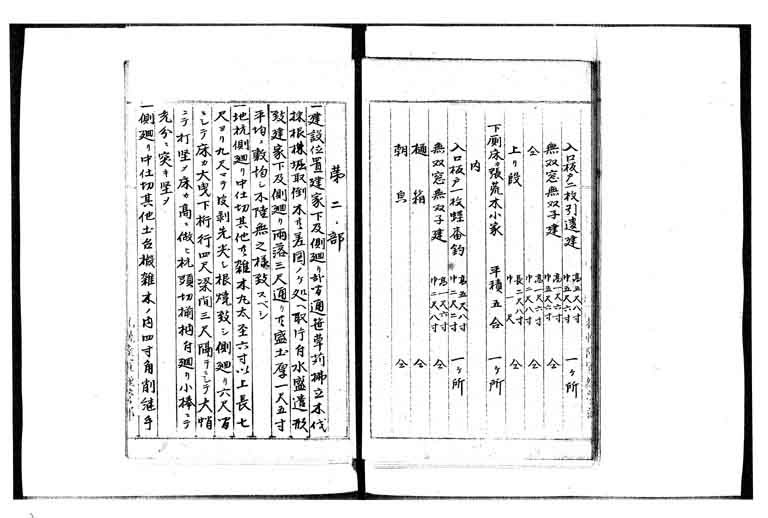 入口板戸二枚引違建 高五尺八寸 巾五尺六寸 一ヶ所
無双窓無双子建 高一尺六寸 巾五尺六寸 仝
仝 高一尺六寸 巾二尺八寸 仝
上り段 長二尺八寸 巾一尺 仝
下厠床ヲ張荒木小家 平積五合 一ヶ所
内
入口板戸一枚蝶番釣 高五尺八寸 巾二尺二寸 一ヶ所
無双窓無双子建 高一尺六寸 巾二尺八寸 仝
樋箱 仝
朝鳥 仝
第二部
一建設位置建家下及側廻り 通笹草苅拂立木伐
採根株堀取倒木 差図ノヶ処ヘ取片付水盛遣形
致建家下及側廻り雨落三尺通り 盛土厚一尺五寸
平均ニ敷均シ不陸無之様致スベシ
一地杭側廻り中仕切其他 雑木丸太至六寸以上長七
尺ヨリ九尺マテ皮剥先尖シ根焼致シ側廻り六尺
ニシテ床 大曳下桁行四尺梁間三尺隔テニシテ大
ニテ打堅メ床 高ニ倣ヒ杭頭切揃 廻り小棒ニテ
充分ニ突キ堅メ
一側廻り中仕切其他土台 雑木ノ内四寸角削継手